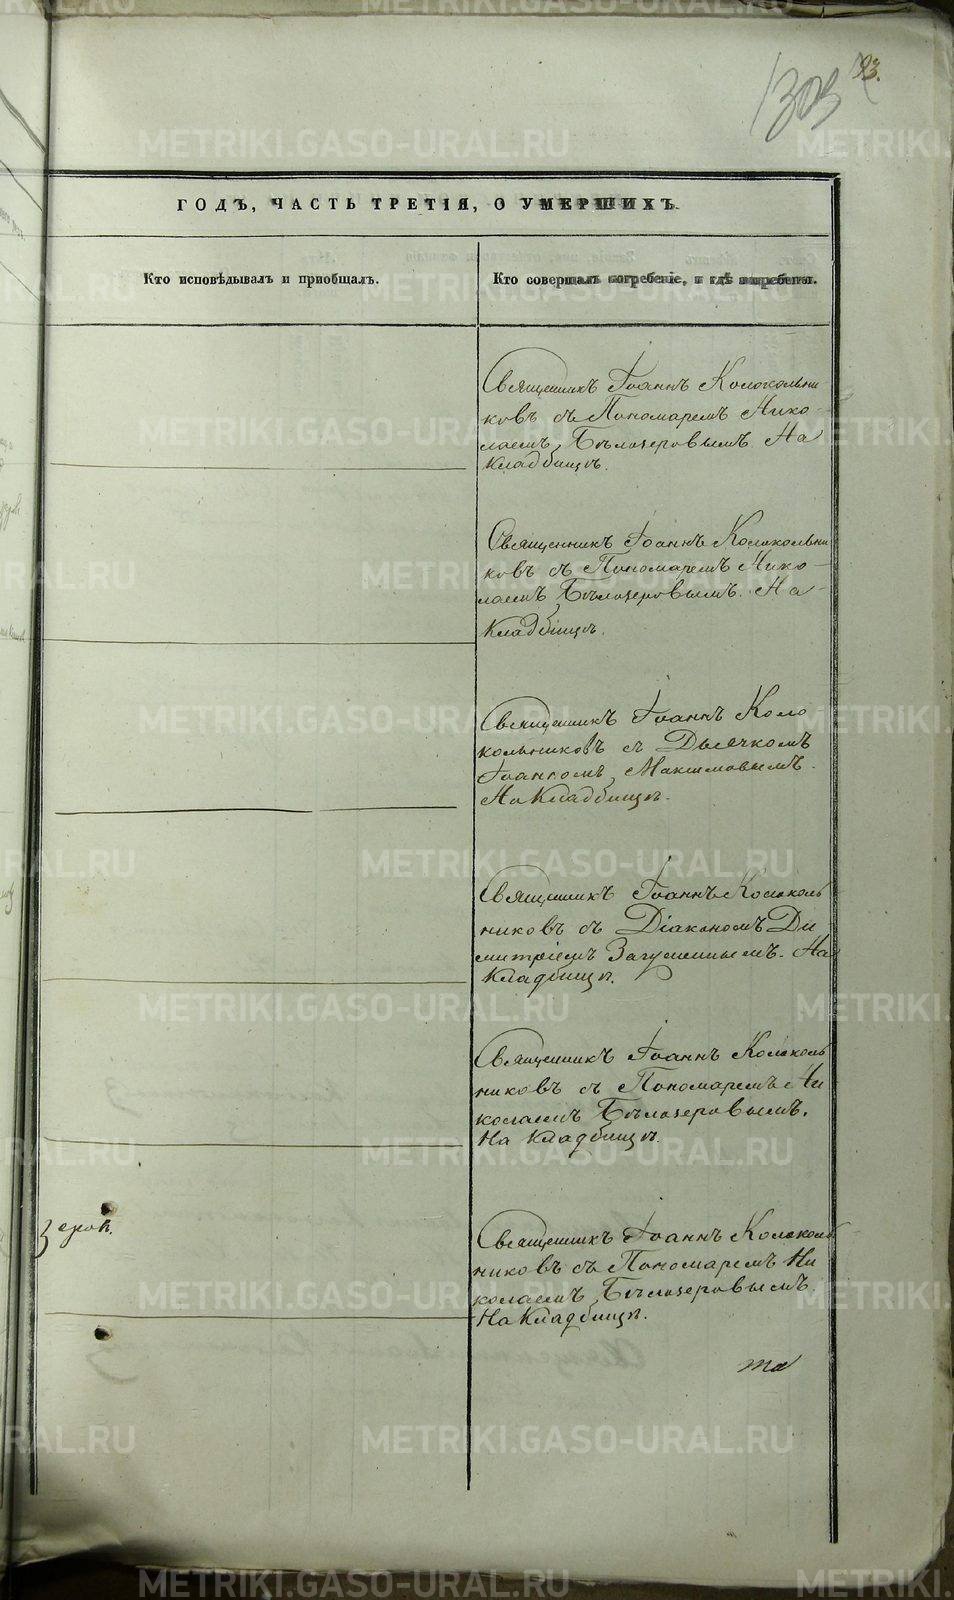 1303
ГОДЪ, ЧАСТЬ ТРЕТІЯ, О УМЕРШИХЪ.
Кто исповѣдывалъ и приобщалъ.
Кто совершалъ погребеніе, и гдѣ погребены.
Священникъ Іоаннъ Колокольни
ковъ съ Пономаремъ Нико-
лаемъ Бѣлозеровымъ. На
Кладбищѣ.
Священникъ Іоаннъ Колокольни
ковъ съ Пономаремъ Нико-
лаемъ Бѣлозеровымъ. На-
Кладбищѣ.
Священникъ Іоаннъ Коло
кольниковъ съ Дьячкомъ
Іоанномъ Максимовымъ.
На Кладбищѣ.
Священникъ Іоаннъ Колоколь
никовъ съ Діакономъ Ди
митріемъ Загуменнымъ. На
Кладбищѣ.
Священникъ Іоаннъ Колоколь
никовъ съ Пономаремъ Ни
колаемъ Бѣлозеровымъ.
На Кладбищѣ.
Священникъ Іоаннъ Колоколь
никовъ съ Пономаремъ Ни
колаемъ Бѣлозеровымъ.
На Кладбищѣ.
METRIKI.GASO-URAL.RU